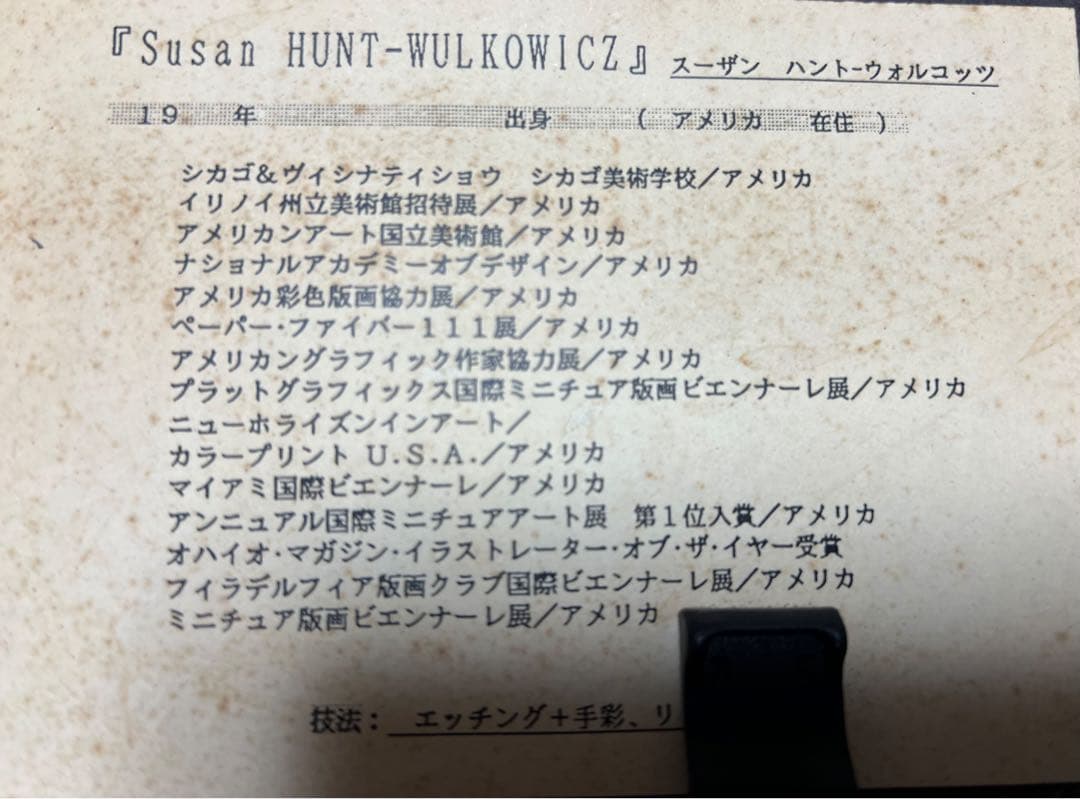 『Susan HUNT-WULKOWICZ』 スーザン ハント-ウォルコッツ
19 年 出身 ( アメリカ 在住 )
シカゴ&ヴィシナティショウ シカゴ美術学校／アメリカ
イリノイ州立美術館招待展／アメリカ
アメリカンアート国立美術館／アメリカ
ナショナルアカデミーオブデザイン／アメリカ
アメリカ彩色版画協力展／アメリカ
ペーパー・ファイバー111展／アメリカ
アメリカングラフィック作家協力展／アメリカ
プラットグラフィックス国際ミニチュア版画ビエンナーレ展／アメリカ
ニューホライズンインアート／
カラープリント U.S.A.／アメリカ
マイアミ国際ビエンナーレ／アメリカ
アンニュアル国際ミニチュアアート展 第1位入賞／アメリカ
オハイオ・マガジン・イラストレーター・オブ・ザ・イヤー受賞
フィラデルフィア版画クラブ国際ビエンナーレ展／アメリカ
ミニチュア版画ビエンナーレ展／アメリカ
技法： エッチング＋手彩、リ